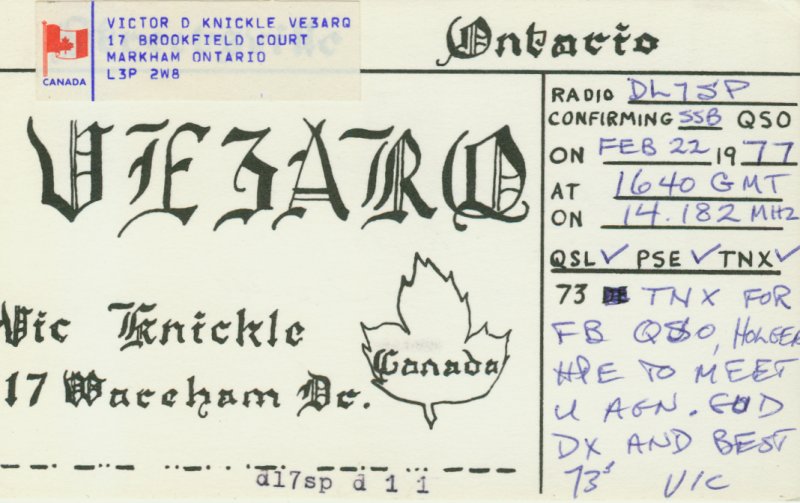 VICTOR D KNICKLE VE3ARQ
17 BROOKFIELD COURT
MARKHAM ONTARIO
L3P 2W8
CANADA
Ontario
VE3ARQ
Vic Knickle
17 Wareham Dr.
Canada
dl7sp d 1 1
RADIO DL7SP
CONFIRMING SSB QSO
ON FEB 22 1977
AT 1640 GMT
ON 14.182 MHz
QSL ✓ PSE ✓ TNX ✓
73 TNX FOR
FB QSO, HOLGER
HPE TO MEET
U AGN. GUD
DX AND BEST
73's VIC